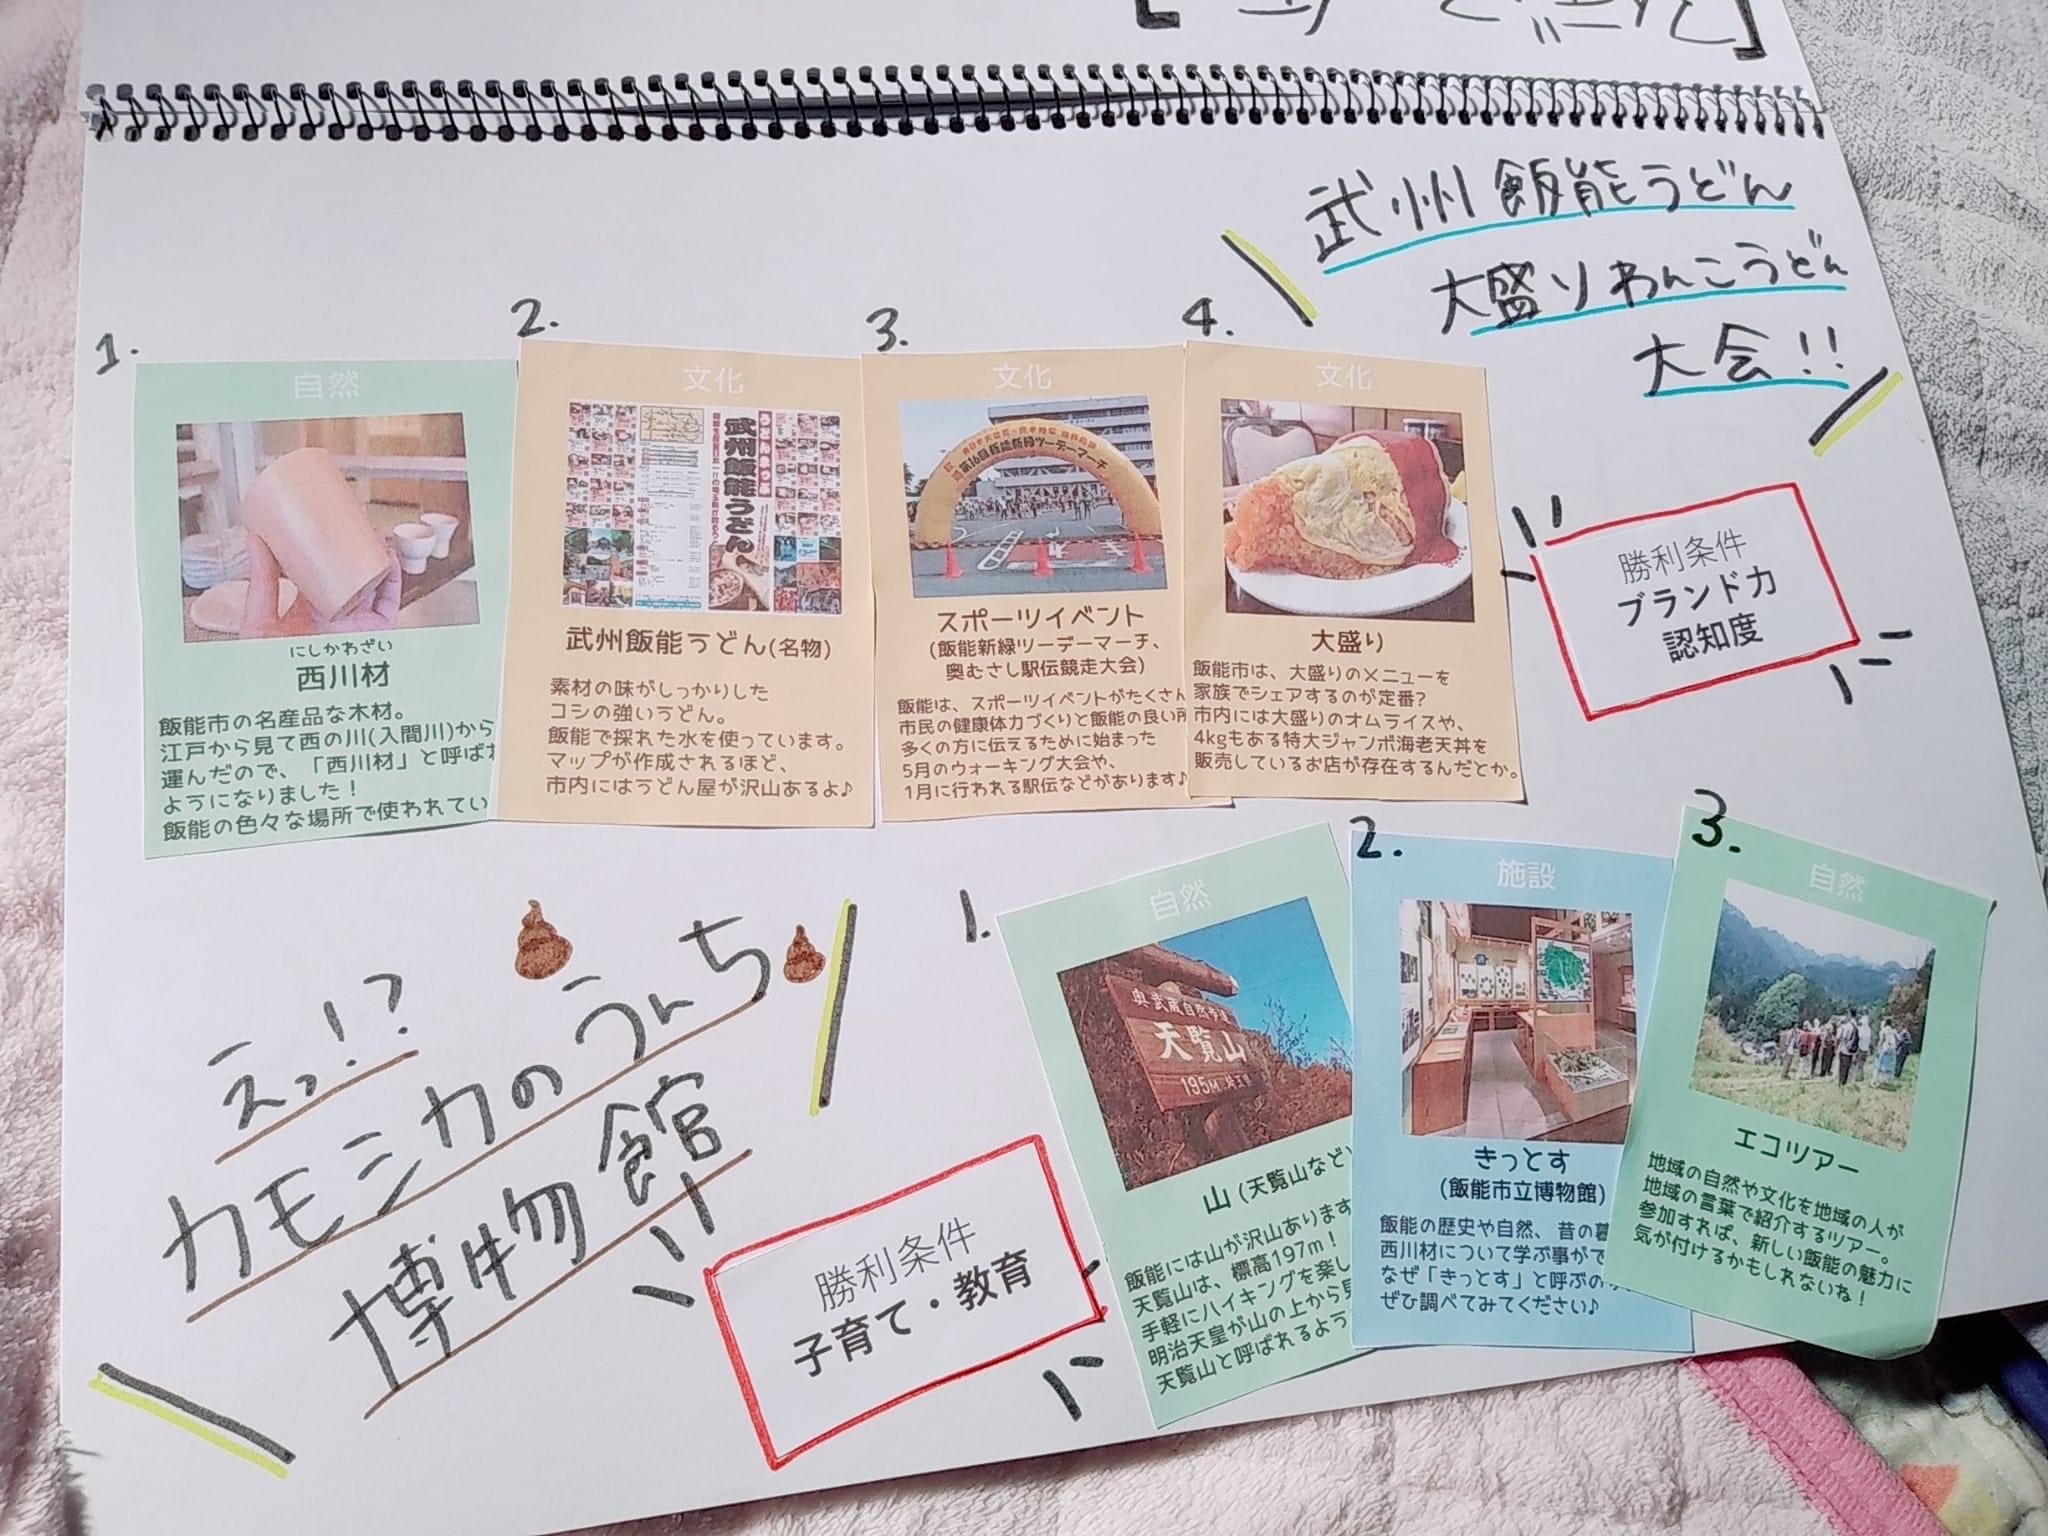 武州飯能うどん
大盛りわんこうどん
大会!!
1.
自然
にしかわざい
西川材
飯能市の名産品な木材。
江戸から見て西の川(入間川)から
運んだので、「西川材」と呼ばれ
ようになりました！
飯能の色々な場所で使われてい
2.
文化
武州飯能うどん
武州飯能うどん(名物)
素材の味がしっかりした
コシの強いうどん。
飯能で採れた水を使っています。
マップが作成されるほど、
市内にはうどん屋が沢山あるよ♪
3.
文化
第16回飯能新緑ツーデーマーチ
スポーツイベント
(飯能新緑ツーデーマーチ、
奥むさし駅伝競走大会)
飯能は、スポーツイベントがたくさん
市民の健康体力づくりと飯能の良い所
多くの方に伝えるために始まった
5月のウォーキング大会や、
1月に行われる駅伝などがあります♪
4.
文化
大盛り
飯能市は、大盛りのメニューを
家族でシェアするのが定番?
市内には大盛りのオムライスや、
4kgもある特大ジャンボ海老天丼を
販売しているお店が存在するんだとか。
勝利条件
ブランド力
認知度
えっ!?
カモシカのうんち
博物館
勝利条件
子育て・教育
1.
自然
奥武蔵自然歩道
天覧山
195M 埼玉県
山(天覧山など
飯能には山が沢山あります
天覧山は、標高197m！
手軽にハイキングを楽し
明治天皇が山の上から見
天覧山と呼ばれるよう
2.
施設
きっとす
(飯能市立博物館)
飯能の歴史や自然、昔の暮
西川材について学ぶ事がで
なぜ「きっとす」と呼ぶの
ぜひ調べてみてください♪
3.
自然
エコツアー
地域の自然や文化を地域の人が
地域の言葉で紹介するツアー。
参加すれば、新しい飯能の魅力に
気が付けるかもしれないね！